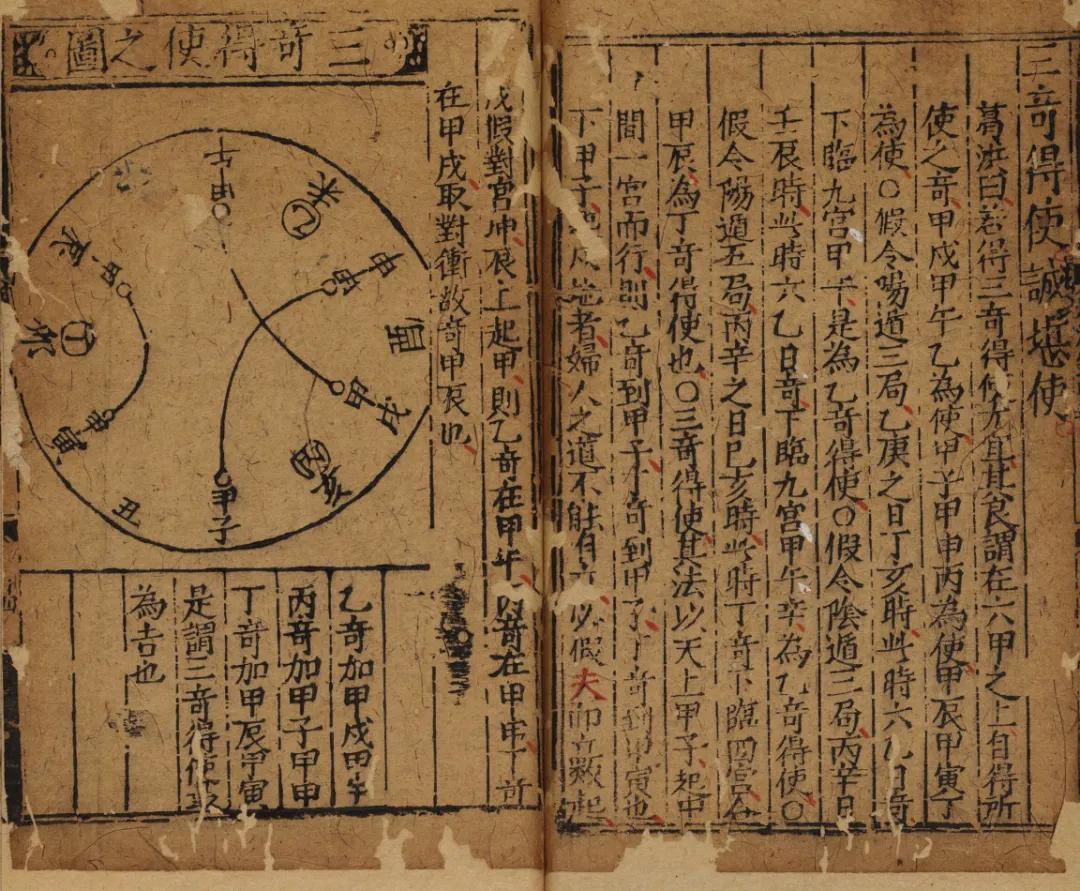 三奇得使誠堪使
葛洪曰若得三奇得使尤宜其良謂在六甲之上自得所
使之奇甲戌甲午乙為使甲子甲申丙為使甲辰甲寅丁
為使〇假令陽遁三局乙庚之日丁亥時此時六乙日奇
下臨九宮甲午是為乙奇得使〇假令陰遁三局丙辛日
壬辰時此時六乙日奇下臨九宮甲午辛為乙奇得使〇
假令陽遁五局丙辛之日己亥時此時丁奇下臨四宮合
甲辰為丁奇得使也〇三奇得使其法以天上甲子起中
間一宮而行則乙奇到甲子 奇到甲 丁奇到甲寅也
下甲子 者婦人之道不能自 必假夫而立 起
戊假對宮坤艮上起甲則乙奇在甲午 奇在甲申丁奇
在甲戌取對衝故奇甲辰也
三奇得使之圖
午甲
未乙
申甲
酉
戌甲
亥
甲子
丑
寅甲
卯丁
辰甲
乙奇加甲戌甲午
丙奇加甲子甲申
丁奇加甲辰甲寅
是謂三奇得使
為吉也